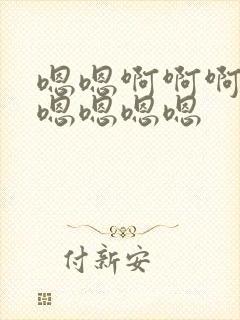 嗯嗯啊啊啊
嗯嗯嗯嗯
付新安